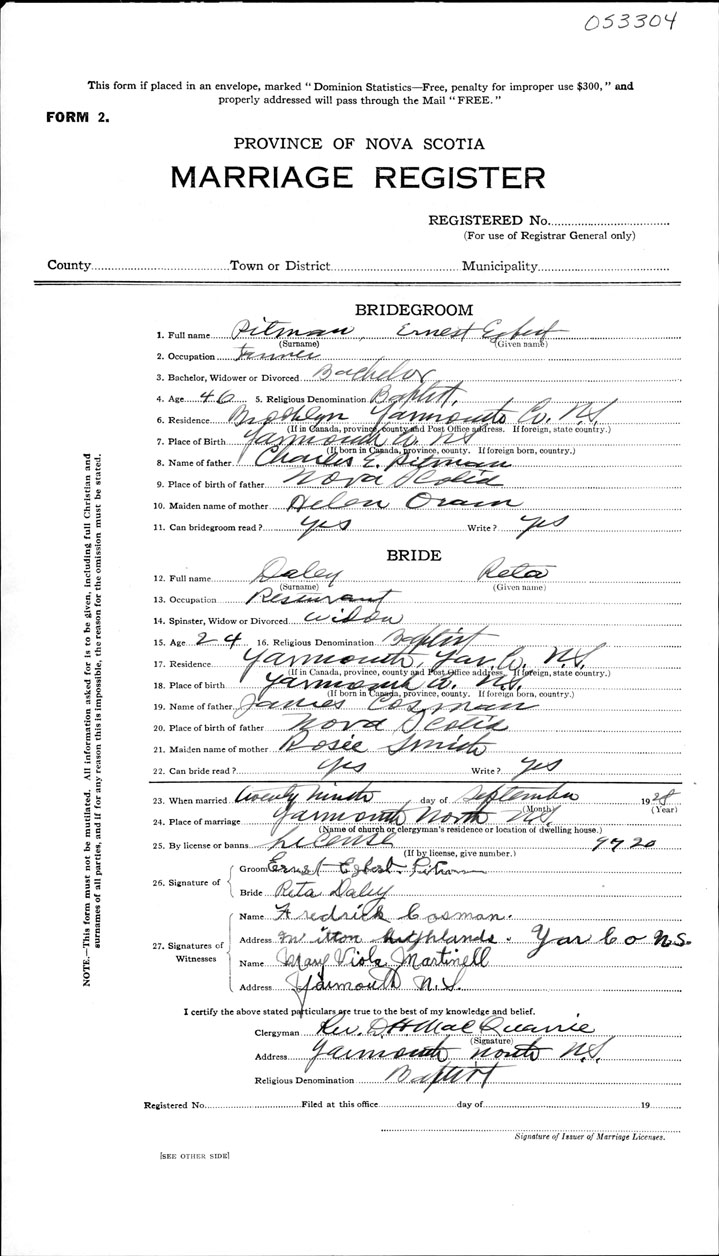 053304
This form if placed in an envelope, marked "Dominion Statistics—Free, penalty for improper use $300," and
properly addressed will pass through the Mail "FREE."
FORM 2.
PROVINCE OF NOVA SCOTIA
MARRIAGE REGISTER
REGISTERED No.
(For use of Registrar General only)
County Town or District Municipality
NOTE.—This form must not be mutilated. All information asked for is to be given, including full Christian and
surnames of all parties, and if for any reason this is impossible, the reason for the omission must be stated.
BRIDEGROOM
1. Full name Pitman, Ernest Egbert
(Surname) (Given name)
2. Occupation
3. Bachelor, Widower or Divorced Bachelor
4. Age 46 5. Religious Denomination Baptist.
6. Residence Brooklyn Yarmouth Co. N.S.
(If in Canada, province, county and Post Office address. If foreign, state country.)
7. Place of Birth Yarmouth Co. NS
(If born in Canada, province, county. If foreign born, country.)
8. Name of father Charles E. Pitman
9. Place of birth of father Nova Scotia
10. Maiden name of mother Helen Oram
11. Can bridegroom read? Yes Write? Yes
BRIDE
12. Full name Daley Reta
(Surname) (Given name)
13. Occupation Resturant
14. Spinster, Widow or Divorced Widow
15. Age 24 16. Religious Denomination Baptist
17. Residence Yarmouth, Yar. Co. N.S.
(If in Canada, province, county and Post Office address. If foreign, state country.)
18. Place of birth Yarmouth Co. N.S.
(If born in Canada, province, county. If foreign born, country.)
19. Name of father James Cosman
20. Place of birth of father Nova Scotia
21. Maiden name of mother Rosie Smith
22. Can bride read? Yes Write? Yes
23. When married twenty ninth day of September 1928
(Month) (Year)
24. Place of marriage Yarmouth North N.S.
(Name of church or clergyman's residence or location of dwelling house.)
25. By license or banns License 9720
(If by license, give number.)
26. Signature of
Groom Ernest Egbert Pitman
Bride Reta Daley
27. Signatures of Witnesses
Name Fredrick Cosman.
Address Highlands. Yar Co N.S.
Name Mary Viola Martinell
Address Yarmouth N.S.
I certify the above stated particulars are true to the best of my knowledge and belief.
Clergyman Rev. D H MacQuarrie
(Signature)
Address Yarmouth North N.S.
Religious Denomination Baptist
Registered No. Filed at this office day of 19
Signature of Issuer of Marriage Licenses.
[SEE OTHER SIDE]